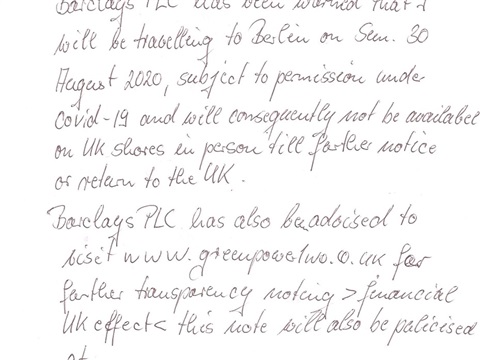 Barclays PLC has been warned that I
will be travelling to Berlin on Sun. 30
August 2020, subject to permission under
Covid-19 and will consequently not be availabel
on UK shores in person till further notice
or return to the UK.
Barclays PLC has also be advised to
visit www.greenpowertwo.co.uk for
further transparency noting > financial
UK effect < this note will also be publicised
at